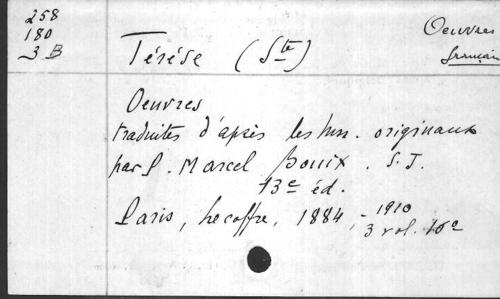 258
180
3 B
Oeuvres
français
Térése (Ste)
Oeuvres
traduites d'après les mss. originaux
par P. Marcel Bouix. S.J.
13e éd.
Paris, Lecoffre, 1884, - 1910
3 vol. 16e